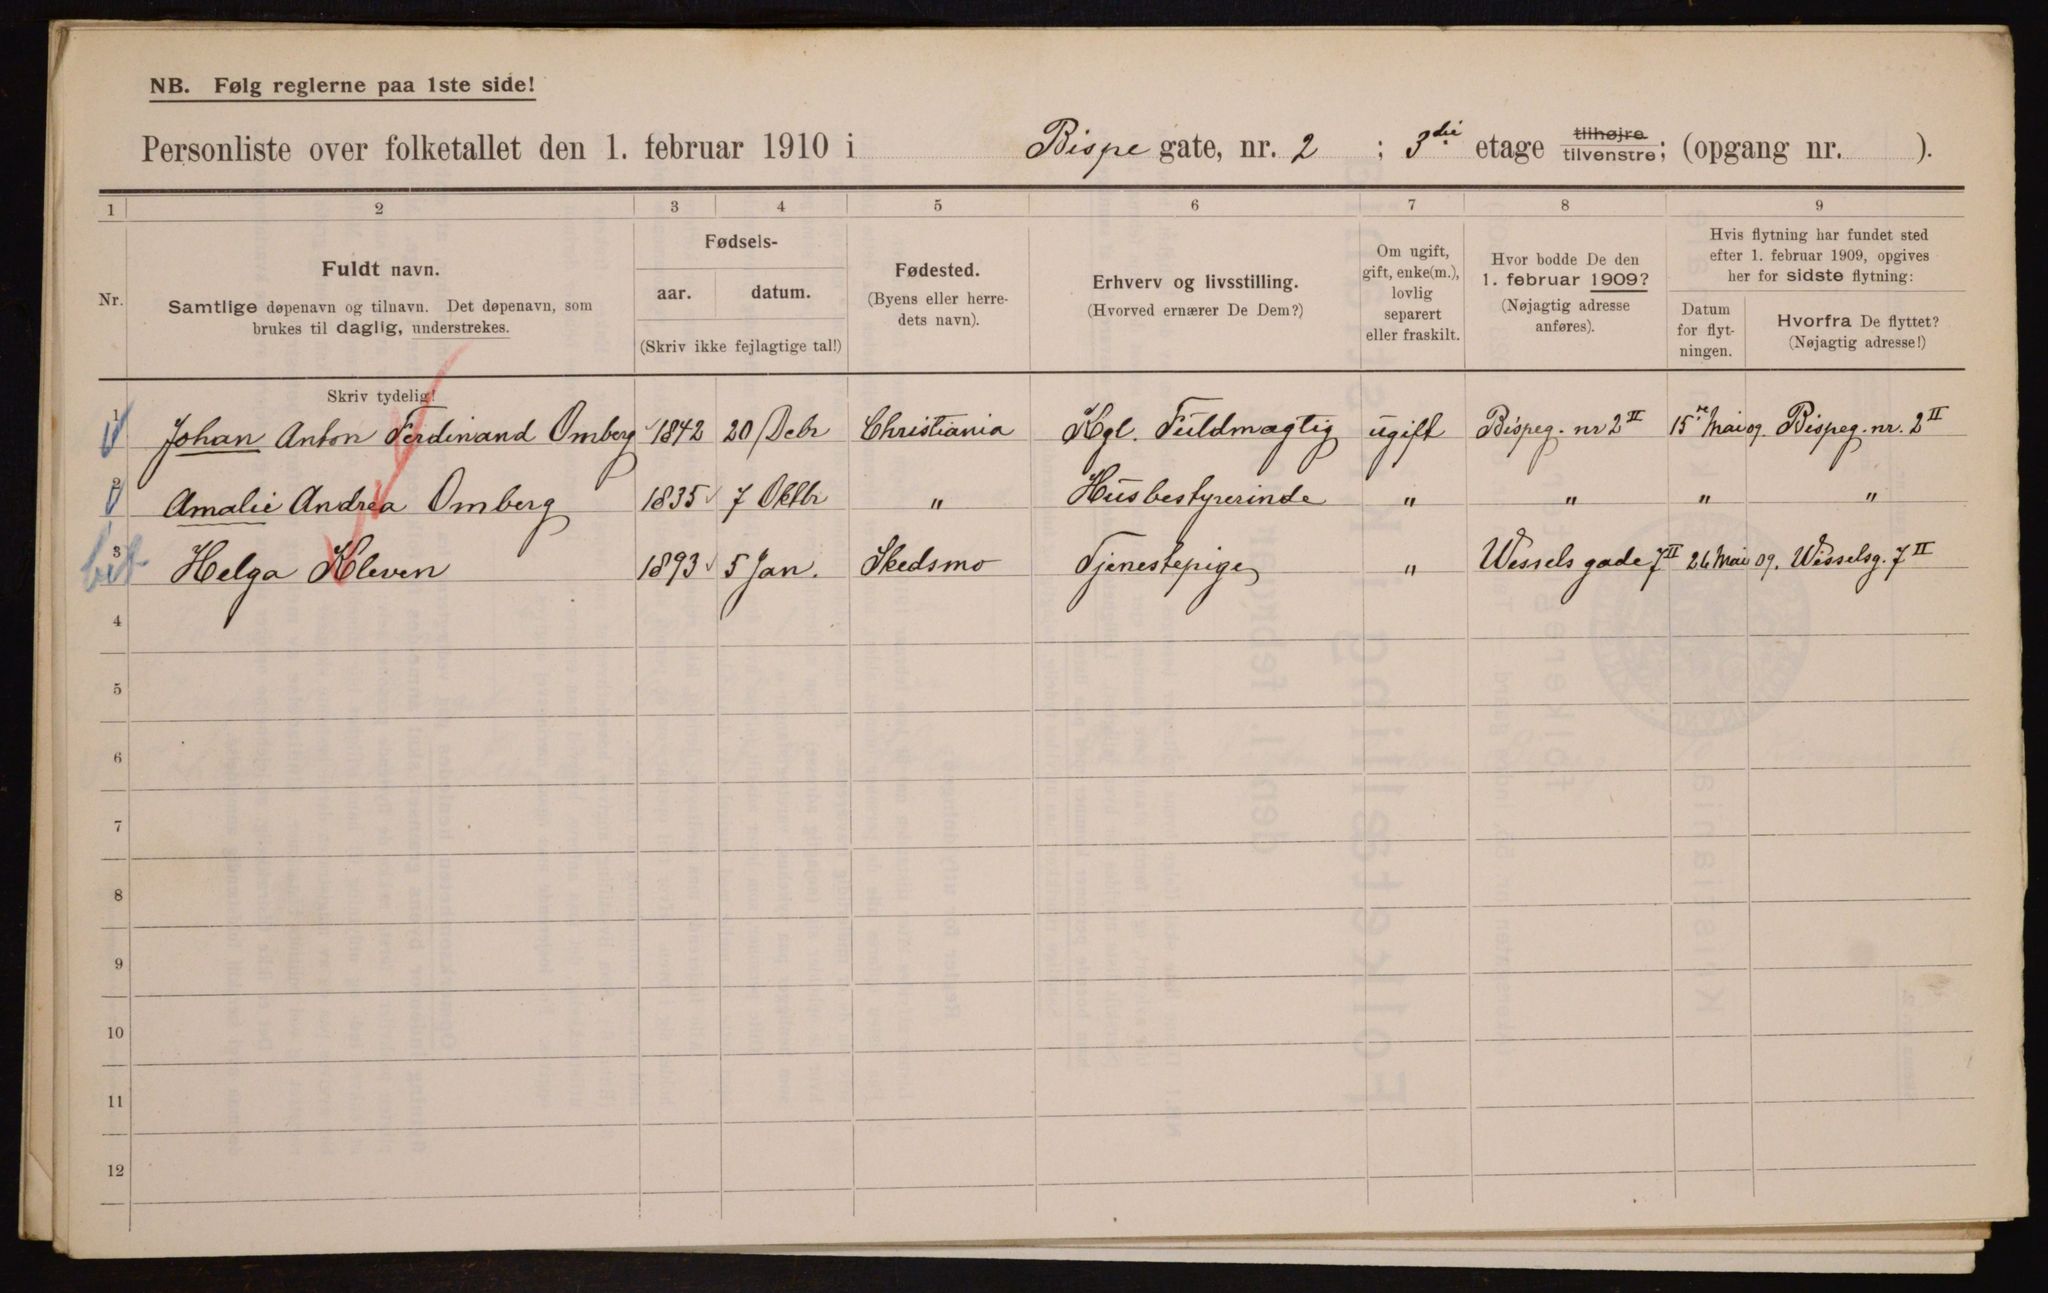 NB. Følg reglerne paa 1ste side!
Personliste over folketallet den 1. februar 1910 i Bispe gate, nr. 2 ; 3die etage tilhøjre tilvenstre; (opgang nr. ).
1 2 3 4 5 6 7 8 9
Nr.
Fuldt navn.
Samtlige døpenavn og tilnavn. Det døpenavn, som
brukes til daglig, understrekes.
Fødsels-
aar. datum.
(Skriv ikke fejlagtige tal!)
Fødested.
(Byens eller herre-
dets navn).
Erhverv og livsstilling.
(Hvorved ernærer De Dem?)
Om ugift,
gift, enke(m.),
lovlig
separert
eller fraskilt.
Hvor bodde De den
1. februar 1909?
(Nøjagtig adresse
anføres).
Hvis flytning har fundet sted
efter 1. februar 1909, opgives
her for sidste flytning:
Datum
for flyt-
ningen.
Hvorfra De flyttet?
(Nøjagtig adresse!)
Skriv tydelig!
1 Johan Anton Ferdinand Omberg 1842 20 Debr Christiania Kgl. Fuldmægtig ugift Bispeg. nr 2 II 15 ne Mai 09. Bispeg. nr. 2 II
2 Amalie Andrea Omberg 1835 7 Oktbr " Husbestyrerinde " " " "
3 Helga Kleven 1893 5 Jan. Skedsmo Tjenestepige " Wessels gade 7 II 26 Mai 09. Wesselsg. 7 II
4
5
6
7
8
9
10
11
12